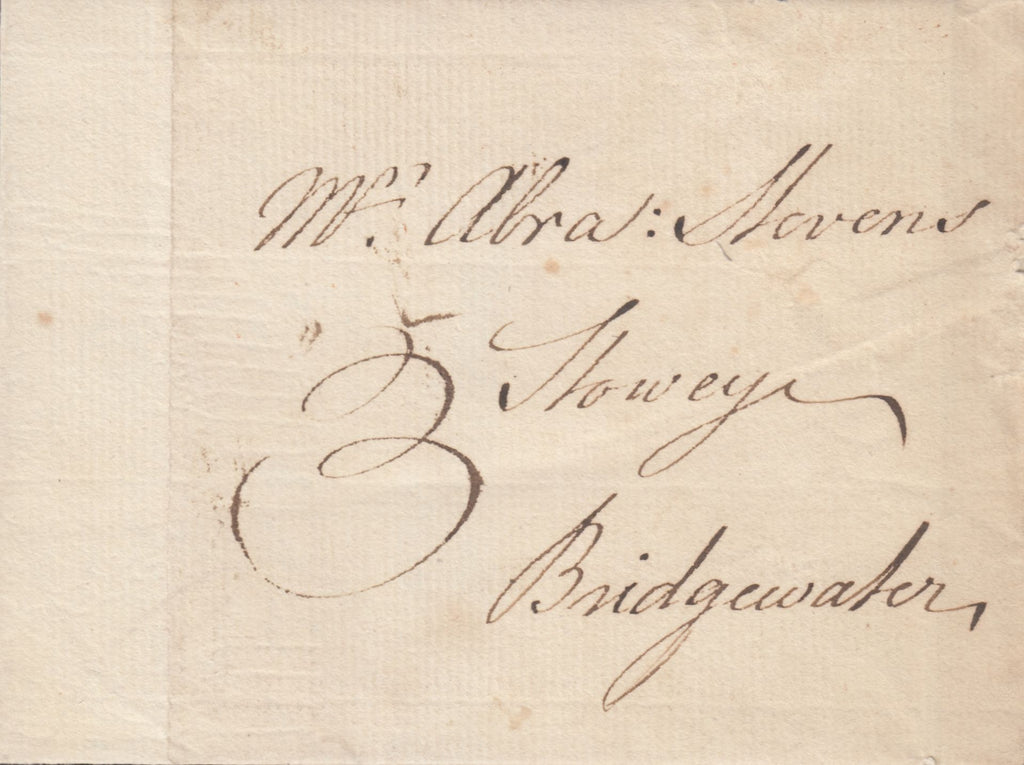 Mr. Abra: Stevens
3
Stowey
Bridgewater,